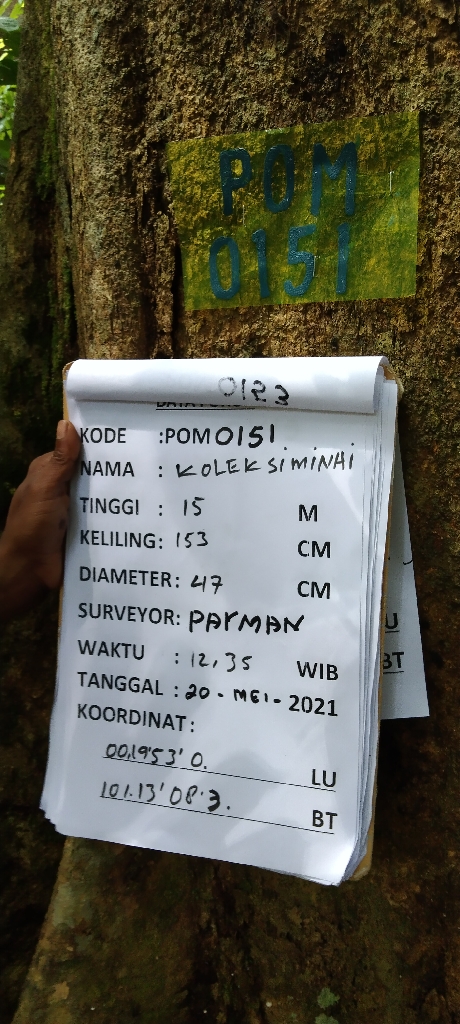 POM
0151
0123
KODE :POM0151
NAMA : KOLEK SIMINAI
TINGGI : 15 M
KELILING: 153 CM
DIAMETER: 47 CM
SURVEYOR: PAYMAN
WAKTU : 12,35 WIB
TANGGAL : 20 - MEI - 2021
KOORDINAT:
00.19'53'0. LU
101.13'08'3. BT
U
BT